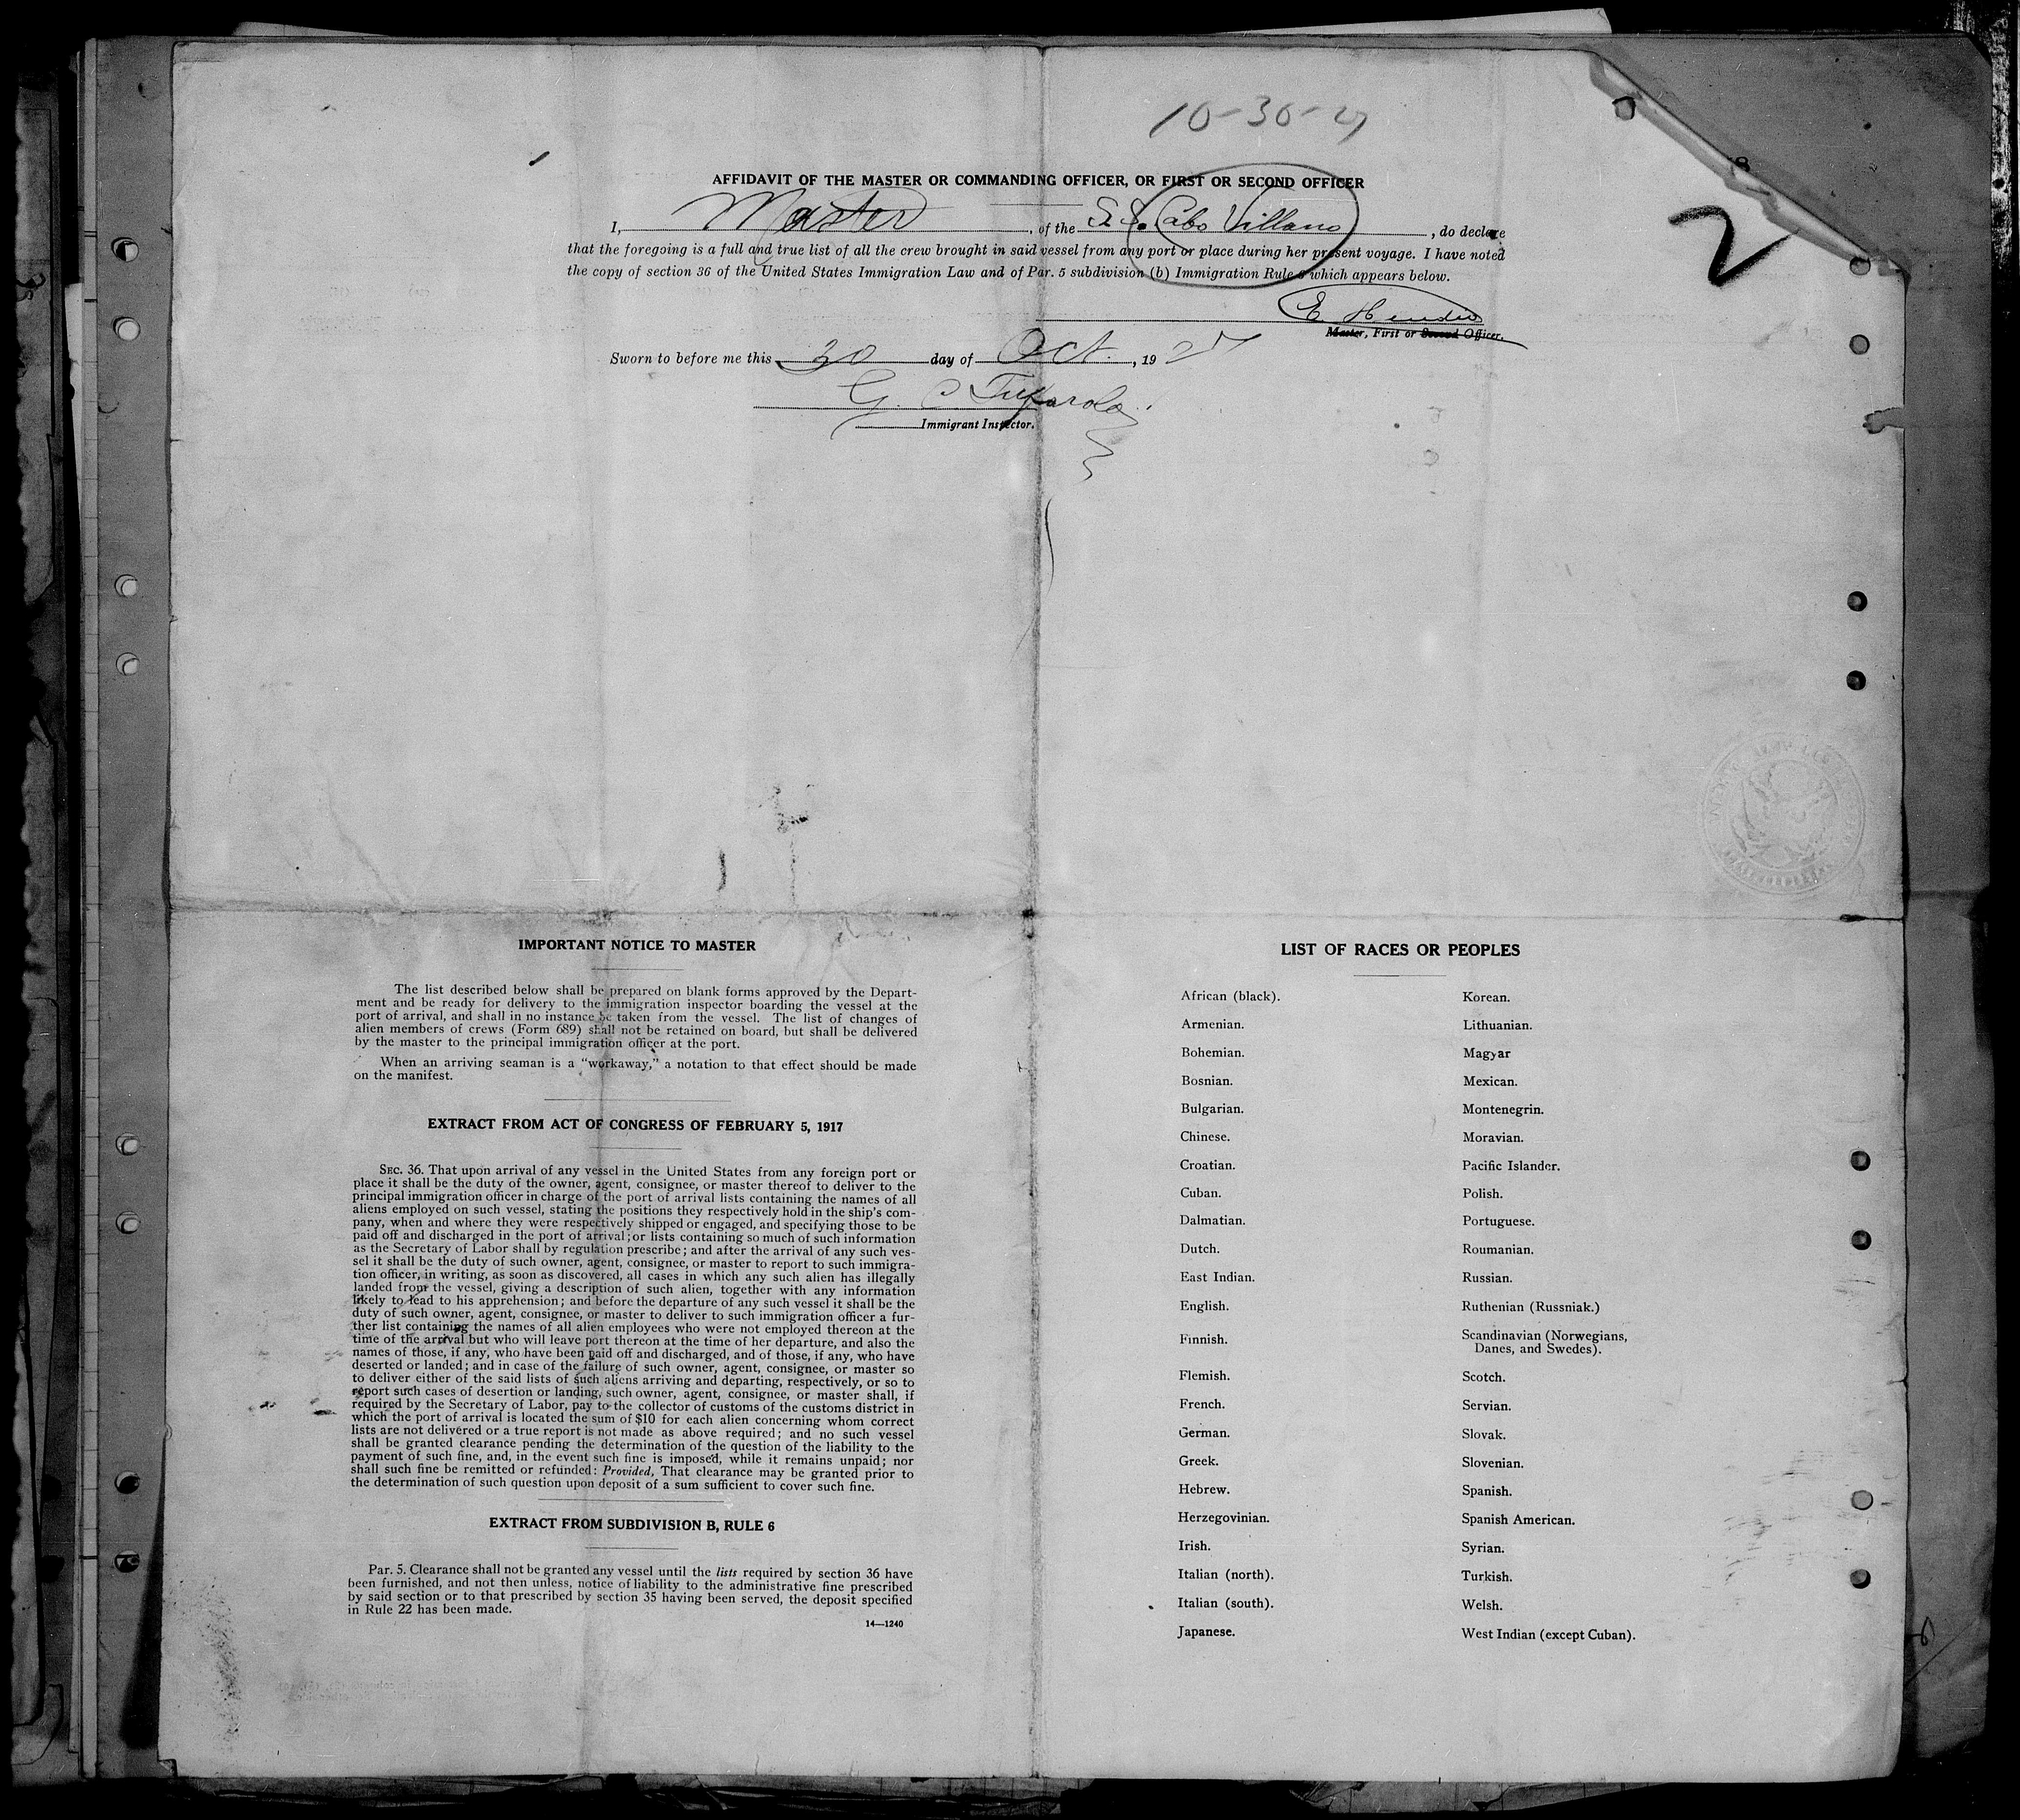 10-30-27
AFFIDAVIT OF THE MASTER OR COMMANDING OFFICER, OR FIRST OR SECOND OFFICER
I, Master, of the S.S. Cabo Villano, do declare
that the foregoing is a full and true list of all the crew brought in said vessel from any port or place during her present voyage. I have noted
the copy of section 36 of the United States Immigration Law and of Par. 5 subdivision (b) Immigration Rule 6 which appears below.
2
E
Master, First or Second Officer.
Sworn to before me this 30 day of Oct., 1927
G.
Immigrant Inspector.
IMPORTANT NOTICE TO MASTER
The list described below shall be prepared on blank forms approved by the Depart-
ment and be ready for delivery to the immigration inspector boarding the vessel at the
port of arrival, and shall in no instance be taken from the vessel. The list of changes of
alien members of crews (Form 689) shall not be retained on board, but shall be delivered
by the master to the principal immigration officer at the port.
When an arriving seaman is a "workaway," a notation to that effect should be made
on the manifest.
EXTRACT FROM ACT OF CONGRESS OF FEBRUARY 5, 1917
SEC. 36. That upon arrival of any vessel in the United States from any foreign port or
place it shall be the duty of the owner, agent, consignee, or master thereof to deliver to the
principal immigration officer in charge of the port of arrival lists containing the names of all
aliens employed on such vessel, stating the positions they respectively hold in the ship's com-
pany, when and where they were respectively shipped or engaged, and specifying those to be
paid off and discharged in the port of arrival; or lists containing so much of such information
as the Secretary of Labor shall by regulation prescribe; and after the arrival of any such ves-
sel it shall be the duty of such owner, agent, consignee, or master to report to such immigra-
tion officer, in writing, as soon as discovered, all cases in which any such alien has illegally
landed from the vessel, giving a description of such alien, together with any information
likely to lead to his apprehension; and before the departure of any such vessel it shall be the
duty of such owner, agent, consignee, or master to deliver to such immigration officer a fur-
ther list containing the names of all alien employees who were not employed thereon at the
time of the arrival but who will leave port thereon at the time of her departure, and also the
names of those, if any, who have been paid off and discharged, and of those, if any, who have
deserted or landed; and in case of the failure of such owner, agent, consignee, or master so
to deliver either of the said lists of such aliens arriving and departing, respectively, or so to
report such cases of desertion or landing, such owner, agent, consignee, or master shall, if
required by the Secretary of Labor, pay to the collector of customs of the customs district in
which the port of arrival is located the sum of $10 for each alien concerning whom correct
lists are not delivered or a true report is not made as above required; and no such vessel
shall be granted clearance pending the determination of the question of the liability to the
payment of such fine, and, in the event such fine is imposed, while it remains unpaid; nor
shall such fine be remitted or refunded: Provided, That clearance may be granted prior to
the determination of such question upon deposit of a sum sufficient to cover such fine.
EXTRACT FROM SUBDIVISION B, RULE 6
Par. 5. Clearance shall not be granted any vessel until the lists required by section 36 have
been furnished, and not then unless, notice of liability to the administrative fine prescribed
by said section or to that prescribed by section 35 having been served, the deposit specified
in Rule 22 has been made.
14—1240
LIST OF RACES OR PEOPLES
African (black).
Armenian.
Bohemian.
Bosnian.
Bulgarian.
Chinese.
Croatian.
Cuban.
Dalmatian.
Dutch.
East Indian.
English.
Finnish.
Flemish.
French.
German.
Greek.
Hebrew.
Herzegovinian.
Irish.
Italian (north).
Italian (south).
Japanese.
Korean.
Lithuanian.
Magyar
Mexican.
Montenegrin.
Moravian.
Pacific Islander.
Polish.
Portuguese.
Roumanian.
Russian.
Ruthenian (Russniak.)
Scandinavian (Norwegians,
Danes, and Swedes).
Scotch.
Servian.
Slovak.
Slovenian.
Spanish.
Spanish American.
Syrian.
Turkish.
Welsh.
West Indian (except Cuban).